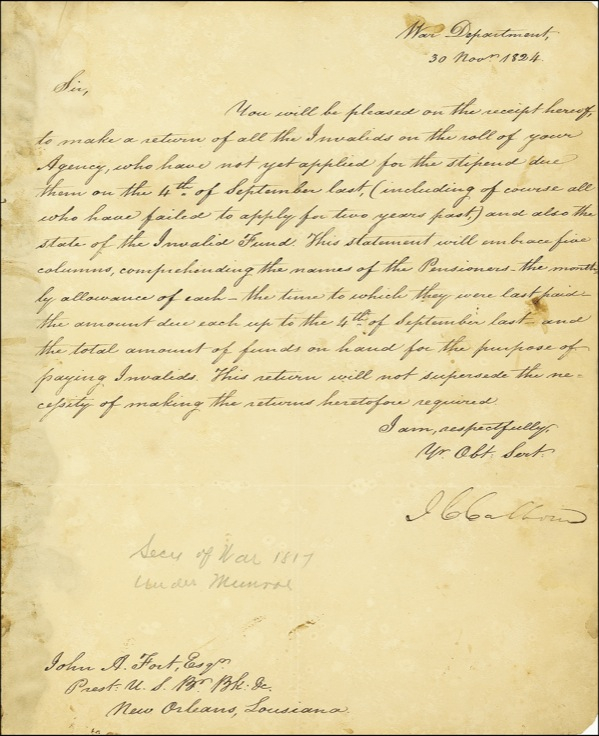 War Department,
30 Novr. 1824.
Sir,
You will be pleased on the receipt hereof,
to make a return of all the Invalids on the roll of your
Agency, who have not yet applied for the stipend due
them on the 4th. of September last, (including of course all
who have failed to apply for two years past,) and also the
state of the Invalid Fund. This statement will embrace five
columns, comprehending the names of the Pensioners - the month-
ly allowance of each - the time to which they were last paid -
the amount due each up to the 4th. of September last - and
the total amount of funds on hand for the purpose of
paying Invalids. This return will not supersede the ne-
cessity of making the returns heretofore required.
I am, respectfully,
Yr. Obt. Servt.
J C Calhoun
Secy of War 1817
Under Munroe
John A. Fort, Esqr.
Prest. U. S. Br. Bk. &c.
New Orleans, Louisiana.